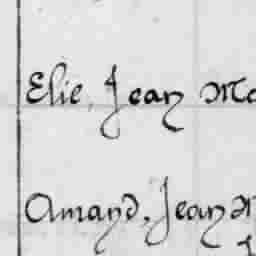 Elie, Jean Ma
Amand, Jean M